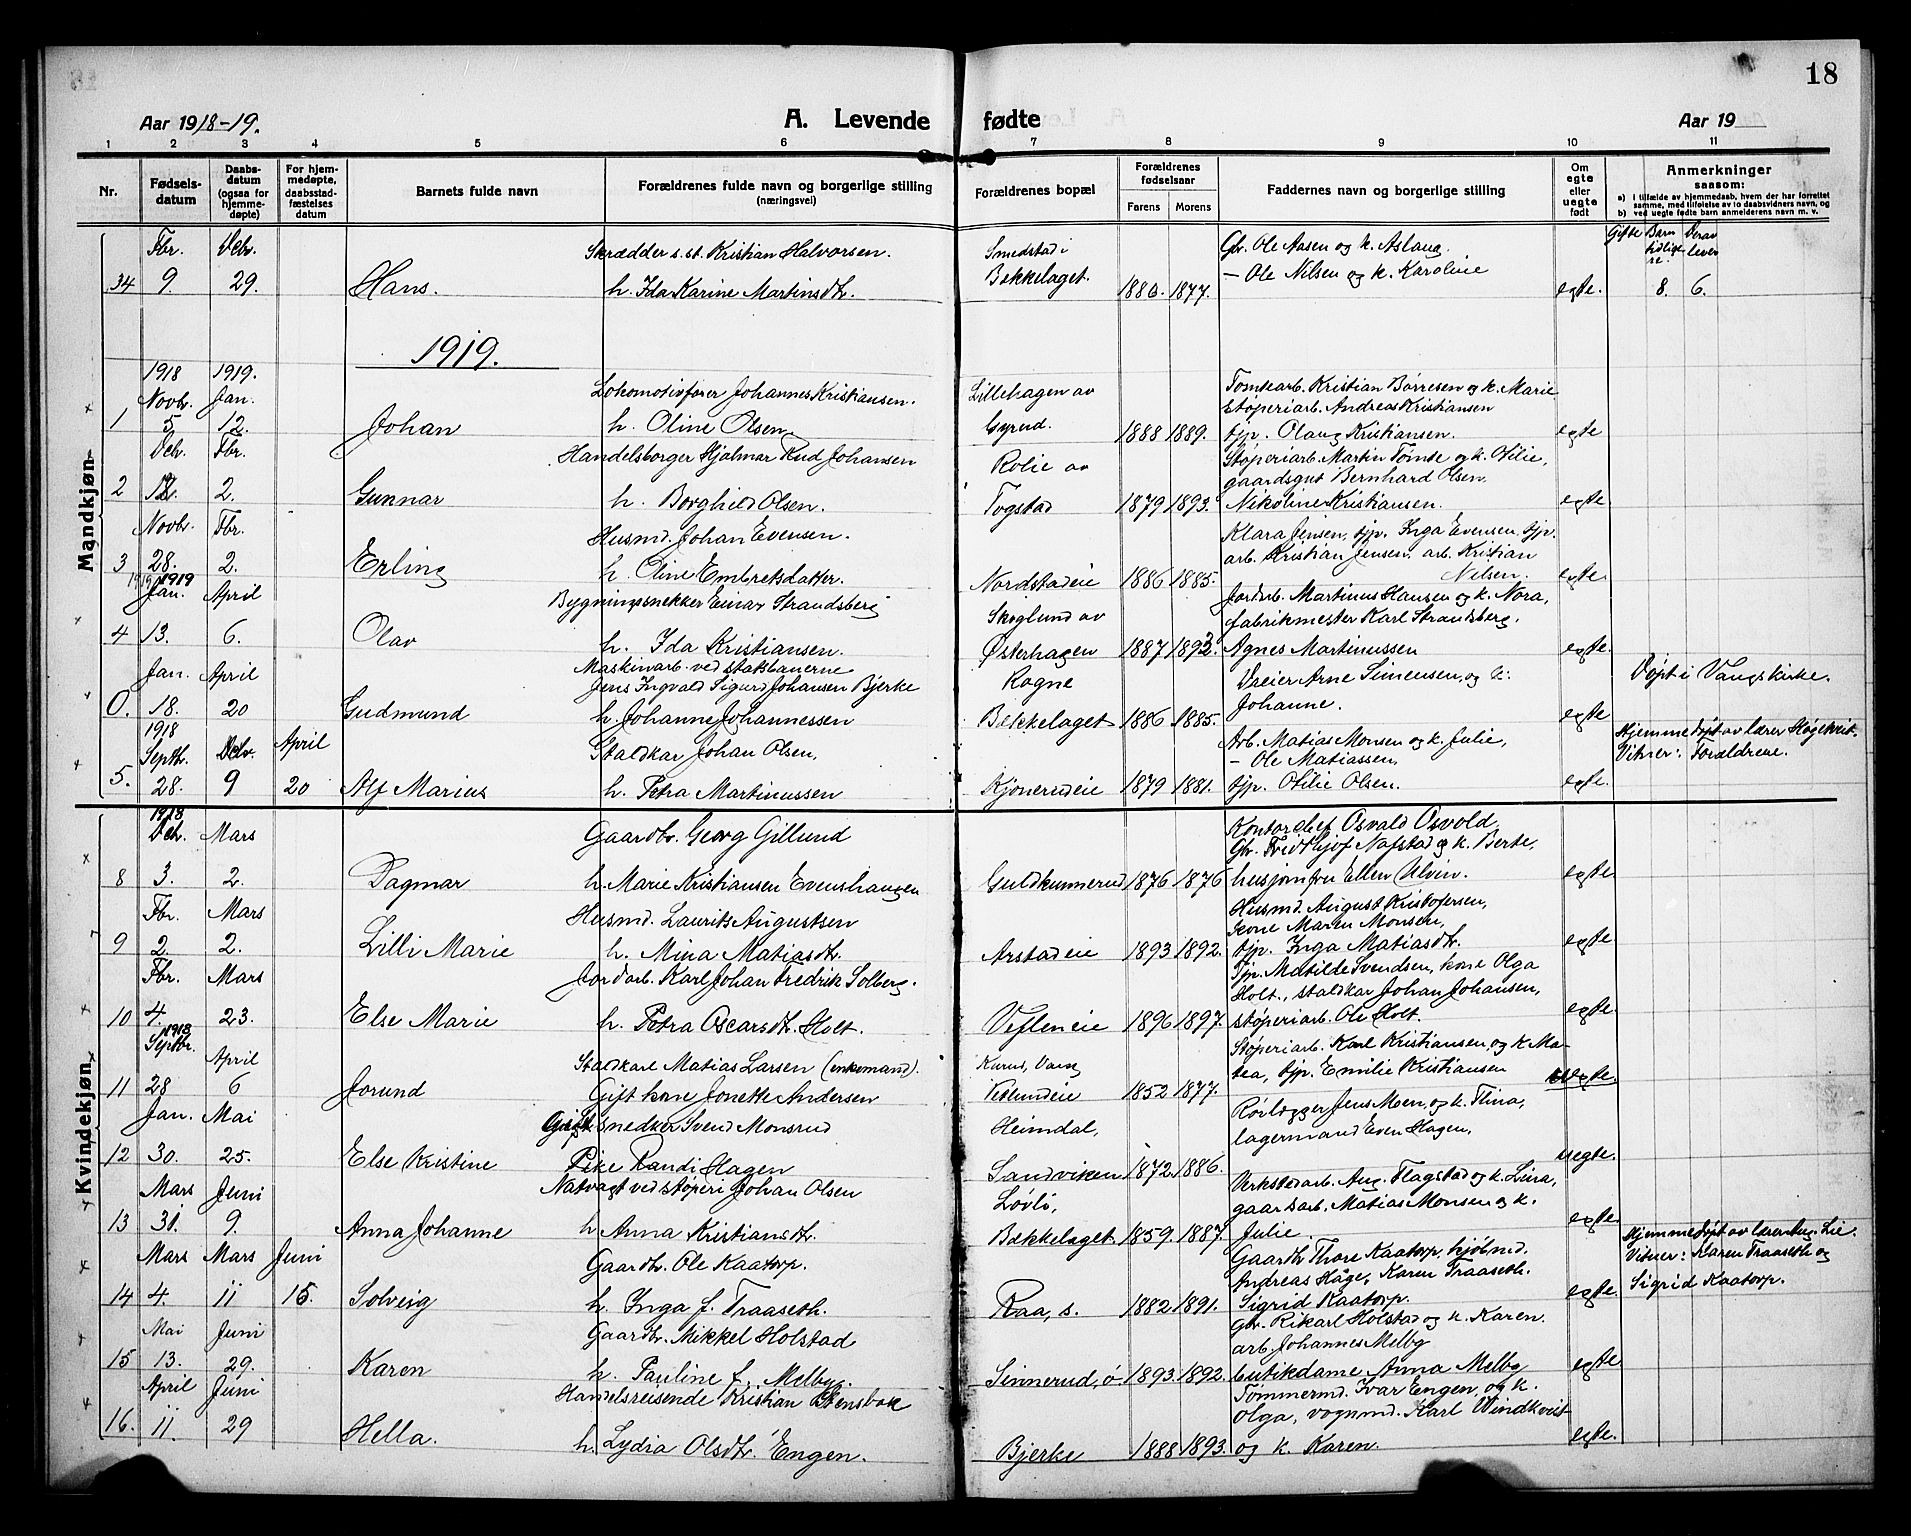 18
Aar 1918-19.
A. Levende fødte
Aar 19
1 2 3 4 5 6 7 8 9 10 11
Nr.
Fødsels-
datum
Daabs-
datum
(ogsaa for
hjemme-
døpte)
For hjem-
medøpte,
daabsstad-
fæstelses
datum
Barnets fulde navn
Forældrenes fulde navn og borgerlige stilling
(næringsvei)
Forældrenes bopæl
Forældrenes
fødselsaar
Farens Morens
Faddernes navn og borgerlige stilling
Om
egte
eller
uegte
født
Anmerkninger
saasom:
a) i tilfælde av hjemmedaab, hvem der har forrettet
samme, med tilføielse av to daabsvidners navn, og
b) ved uegte fødte barn anmelderens navn m. v.
Mandkjøn
Fbr. Debr. Skrædder s. st. Kristian Halvorsen. Smedstad i Gbr. Ole Aasen og k. Aslaug Gifte Barn Derav
tidlige- lever
re.
34 9. 29. Hans. h. Ida Karine Martinsdtr. Bekkelaget. 1880. 1877. — Ole Nilsen og k. Karoline egte. 8. 6.
1919.
1918 1919.
Novbr. Jan. Lokomotivfører Johannes Kristiansen. Lillehagen av Tomtearb. Kristian Børresen og k. Marie
Støperiarb. Andreas Kristiansen
1 5 12. Johan h. Oline Olsen. Gyrud. 1888 1889. tjp. Olaug Kristiansen. egte
Debr. Fbr. Handelsborger Hjalmar Rud Johansen Rolie av Støperiarb. Martin Tomte og k. Otilie,
gaardsgut Bernhard Olsen.
2 12. 2. Gunnar h. Borghild Olsen. Togstad 1879 1893. Nikoline Kristiansen. egte
Novbr. Fbr. Husmd. Johan Evensen. Klara Jensen, tjp. Inga Evensen, tjp.
arb. Kristian Jensen. arb. Kristian
3 28. 2. Erling h. Oline Embretsdatter. Nordstadeie 1886 1885. Nilsen. egte.
1919 Jan. April Bygningssnekker Einar Strandsberg Skoglund av Jordarb. Martinus Hansen og k. Nora,
fabrikmester Karl Strandsberg.
4 13. 6. Olav h. Ida Kristiansen. Østerhagen 1887 1892. Agnes Martinussen egte.
Jan. April Maskinarb. ved statsbanerne
Jens Ingvald Sigurd Johansen Bjerke Rogne Vaeier Arne Simensen, og k. Døpt i Vangs kirke.
0. 18. 20 Gudmund h. Johanne Johannessen Bekkelaget 1886 1885. Johanne. egte
1918
Septbr. Debr. April Staldkar Johan Olsen, Arb. Matias Monsen og k. Julie, Hjemmedøpt av lærer Høgekvist.
— Ole Matiassen, Vitner: Forældrene.
5. 28. 9 20 Alf Marius h. Petra Martinussen Kjonerudeie 1879 1881. tjp. Otilie Olsen. egte.
Kvindekjøn
1918
Debr. Mars Gaardbr. Georg Gillund Kontorchef Osvald Osvold,
Gbr. Fridthjof Nafstad og k. Berte,
8 3. 2. Dagmar h. Marie Kristiansen Evenshaugen Guldkunnerud 1876 1876 husjomfru Ellen Ulvin. egte
Fbr. Mars Husmd. Laurits Augustsen Husmd. August Kristofersen,
kone Maren Monsen,
9 2. 2. Lilli Marie h. Mina Matiasdtr. Arstadeie 1893 1892. tjp. Inga Matiasdtr. egte
Fbr. Mars Jordarb. Karl Johan Fredrik Solberg. Tjp. Matilde Svendsen, kone Olga
Holt, staldkar Johan Johansen,
10 4. 23. Else Marie h. Petra Oscarsdtr. Holt. Veflen eie 1896 1897. støperiarb. Ole Holt. egte
1918
Septbr. April Staldkarl Matias Larsen (enkemand). Vang Støperiarb. Karl Kristiansen, og k. Ma-
11 28 6 Jorund Gift kone Jonette Andersen 1852 1877. tea, tjp. Emilie Kristiansen uegte.
Jan. Mai Gift snedker Svend Monsrud Heimdal, Rørlægger Jens Moen, og k. Thina,
lagermand Even Hagen,
12 30. 25. Else Kristine Pike Randi Hagen Sandviken 1872 1886. uegte.
Mars Juni Natvagt ved støperi Johan Olsen Løvli, Verkstedarb. Aug. Flagstad og k. Lina,
gaardsarb. Matias Monsen og k.
13 31. 9. Anna Johanne h. Anna Kristiansdtr. Bekkelaget 1859. 1887. Julie. egte
Mars Mars Juni Gaardbr. Ole Kaatorp. Gaardbr. Thore Kaatorp, kjøbmd. Hjemmedøpt av lærer Aug. Lie.
Andreas Håge, Karen Traaseth. Vitner: Karen Traaseth og
14 4. 11 15. Solveig h. Inga f. Traaseth. Raa, s. 1882. 1891. Sigrid Kaatorp. egte. Sigrid Kaatorp.
Mai Juni Gaardbr. Mikkel Holstad Gbr. Rikard Holstad og k. Karen.
arb. Johannes Melby
15 13. 29. Karen h. Pauline f. Melby. Sinnerud, ø 1893. 1892. butikdame Anna Melby egte
April Juni Handelsreisende Kristian Stensbak Tømmermd. Ivar Engen, og k.
Olga, vognmd. Karl Windkvist
16. 11. 29 Hella. h. Lydia Olsdtr. Engen. Bjerke 1888 1893. og k. Karen. egte.